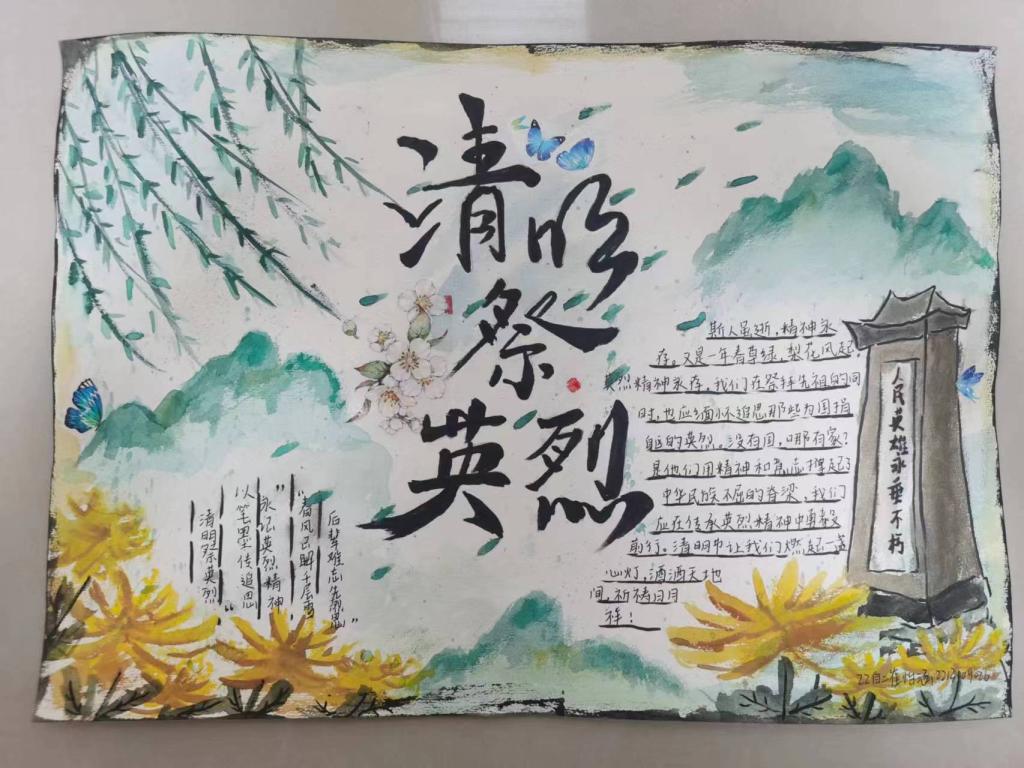 清明
祭
英烈
斯人虽逝,精神永
存。又是一年春草绿,梨花风起,
英烈精神永存,我们在祭拜先祖的同
时,也应缅怀追思那些为国捐
躯的英烈。没有国,哪有家?
是他们用精神和意志撑起了
中华民族不屈的脊梁,我们
应在传承英烈精神中勇毅
前行。清明节让我们燃起一盏
心灯,洒洒天地
间,祈祷日月
祥!
人民英雄永垂不朽
后辈难忘先烈恩”
“春风已解千层雪
永怀英烈精神
以笔墨传追思
清明祭英烈
22自二